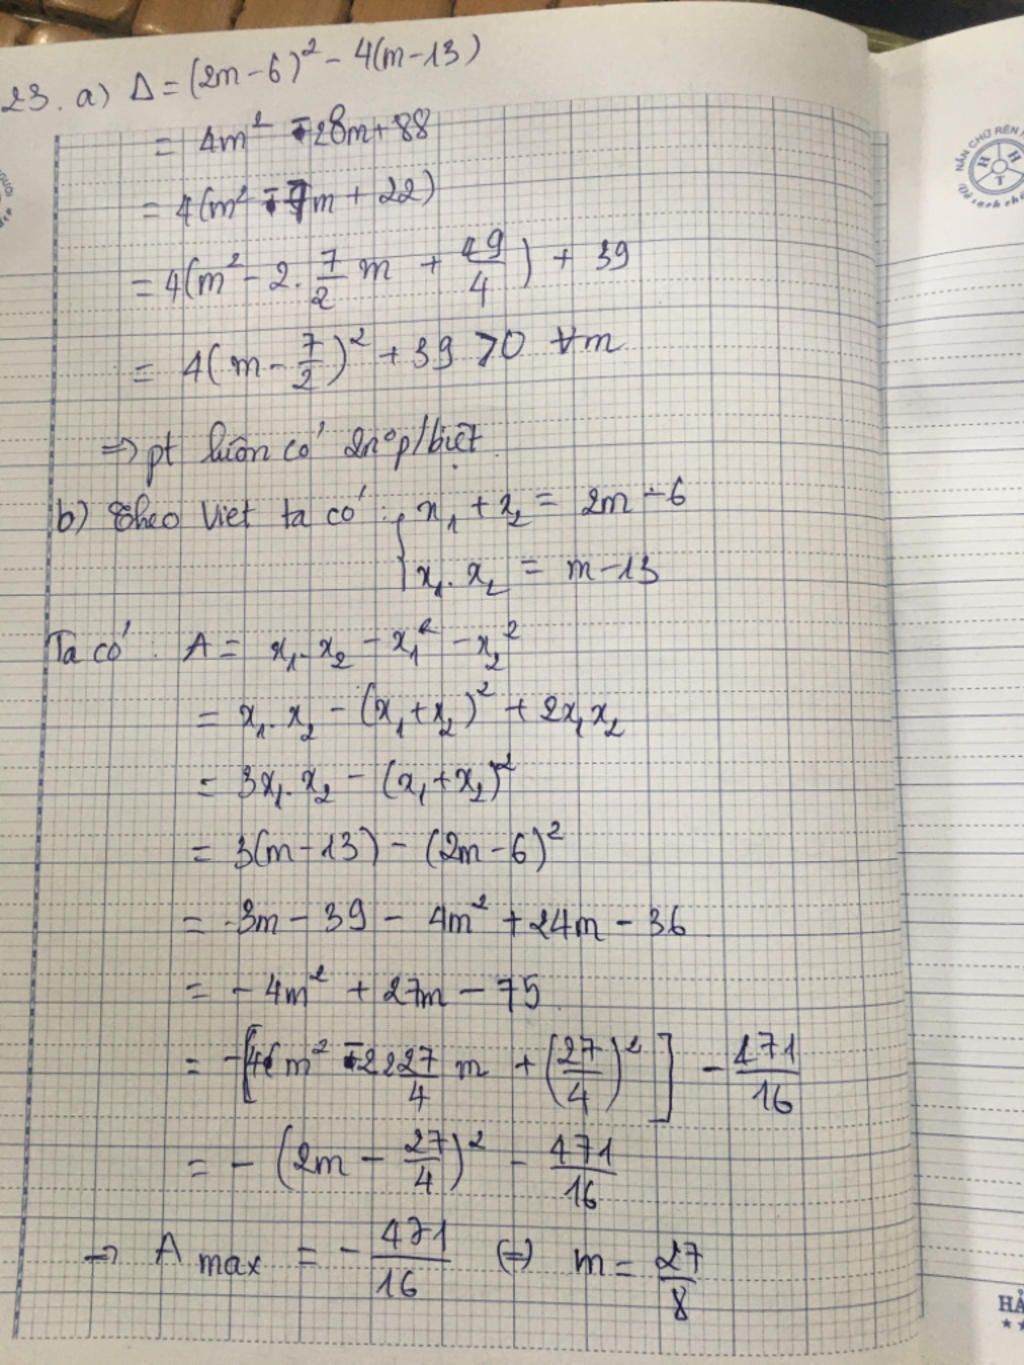 23. a) Δ = (2m - 6)² - 4(m - 13)
= 4m² - 28m + 88
= 4(m² - 7m + 22)
= 4(m² - 2. 7/2 m + 49/4) + 39
= 4(m - 7/2)² + 39 > 0 ∀m
=> pt luôn có 2n⁰ p/biệt.
b) Theo Viet ta có: { x₁ + x₂ = 2m - 6
x₁. x₂ = m - 13
Ta có: A = x₁. x₂ - x₁² - x₂²
= x₁. x₂ - (x₁ + x₂)² + 2x₁x₂
= 3x₁. x₂ - (x₁ + x₂)²
= 3(m - 13) - (2m - 6)²
= 3m - 39 - 4m² + 24m - 36
= - 4m² + 27m - 75
= -[4m² - 2.2 27/4 m + (27/4)²] - 471/16
= - (2m - 27/4)² - 471/16
=> A max = - 471/16 (=) m = 27/8
NẮN CHỮ RÈN
H H T
HẢ